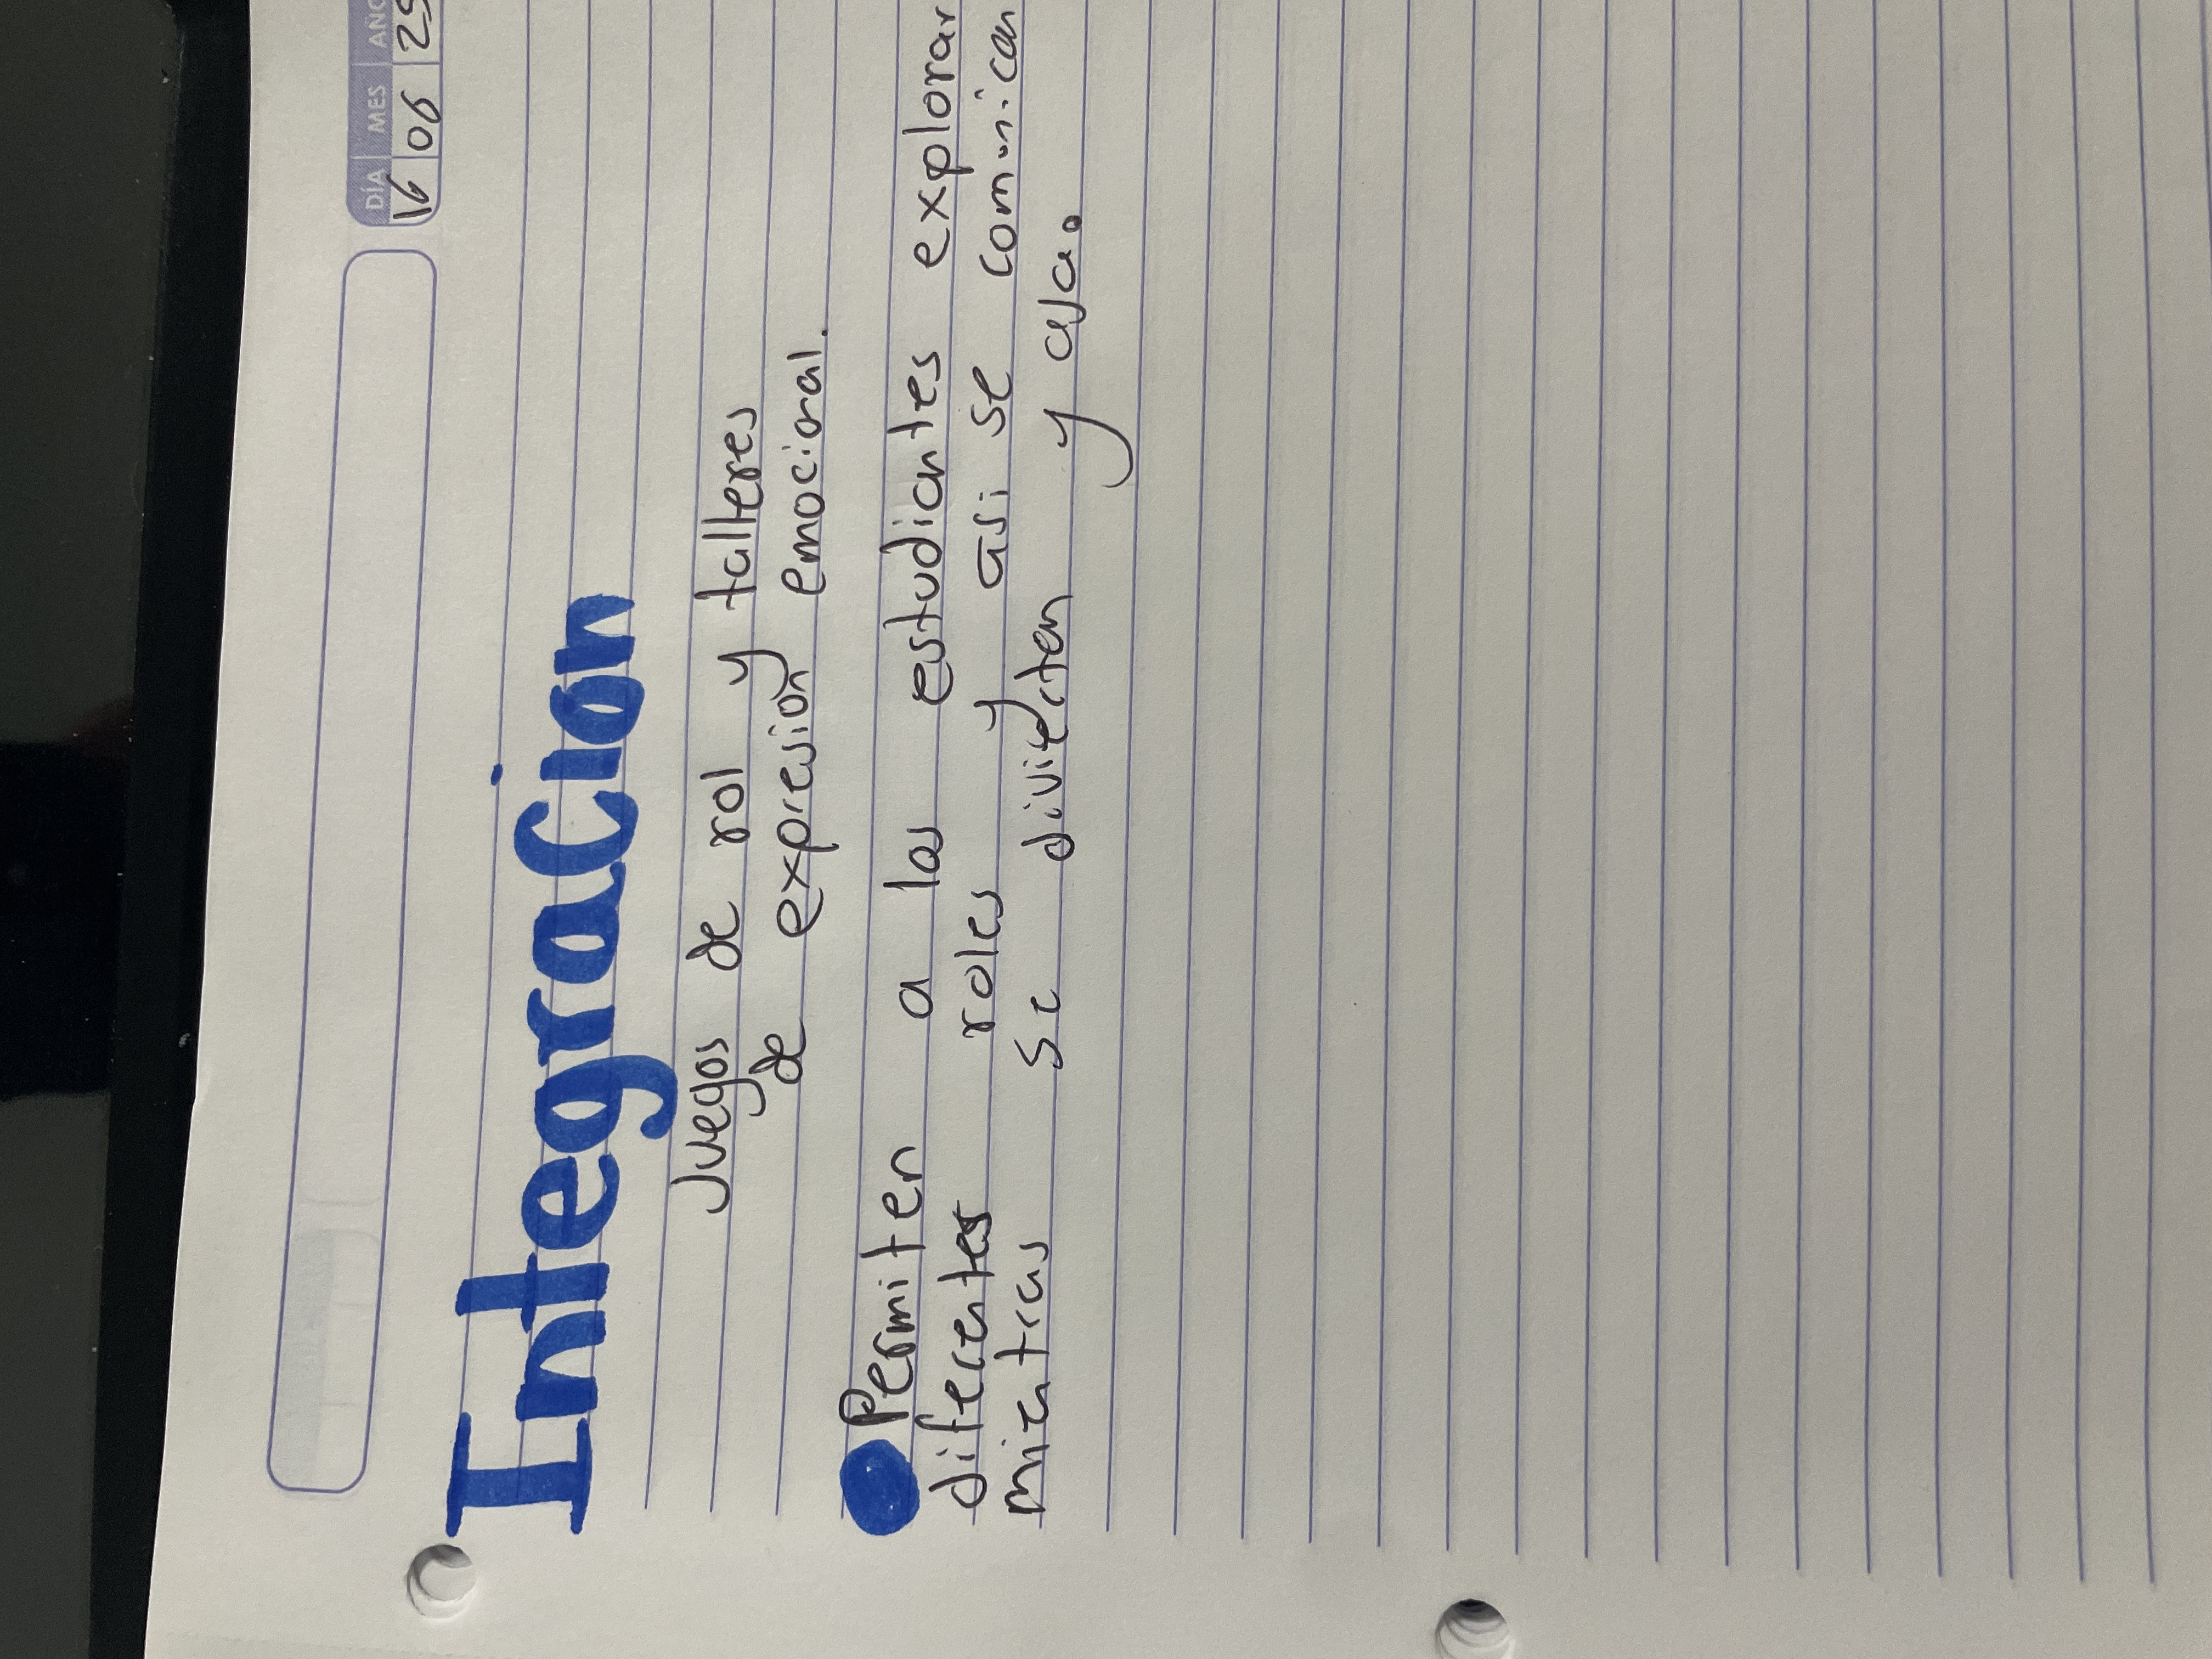 DÍA MES AÑO
16 06 25
IntegraCion
Juegos de rol y talleres
de expresión emocional.
Permiten a los estudiantes explorar
diferentes roles y asi se comunican
mientras se divierten y